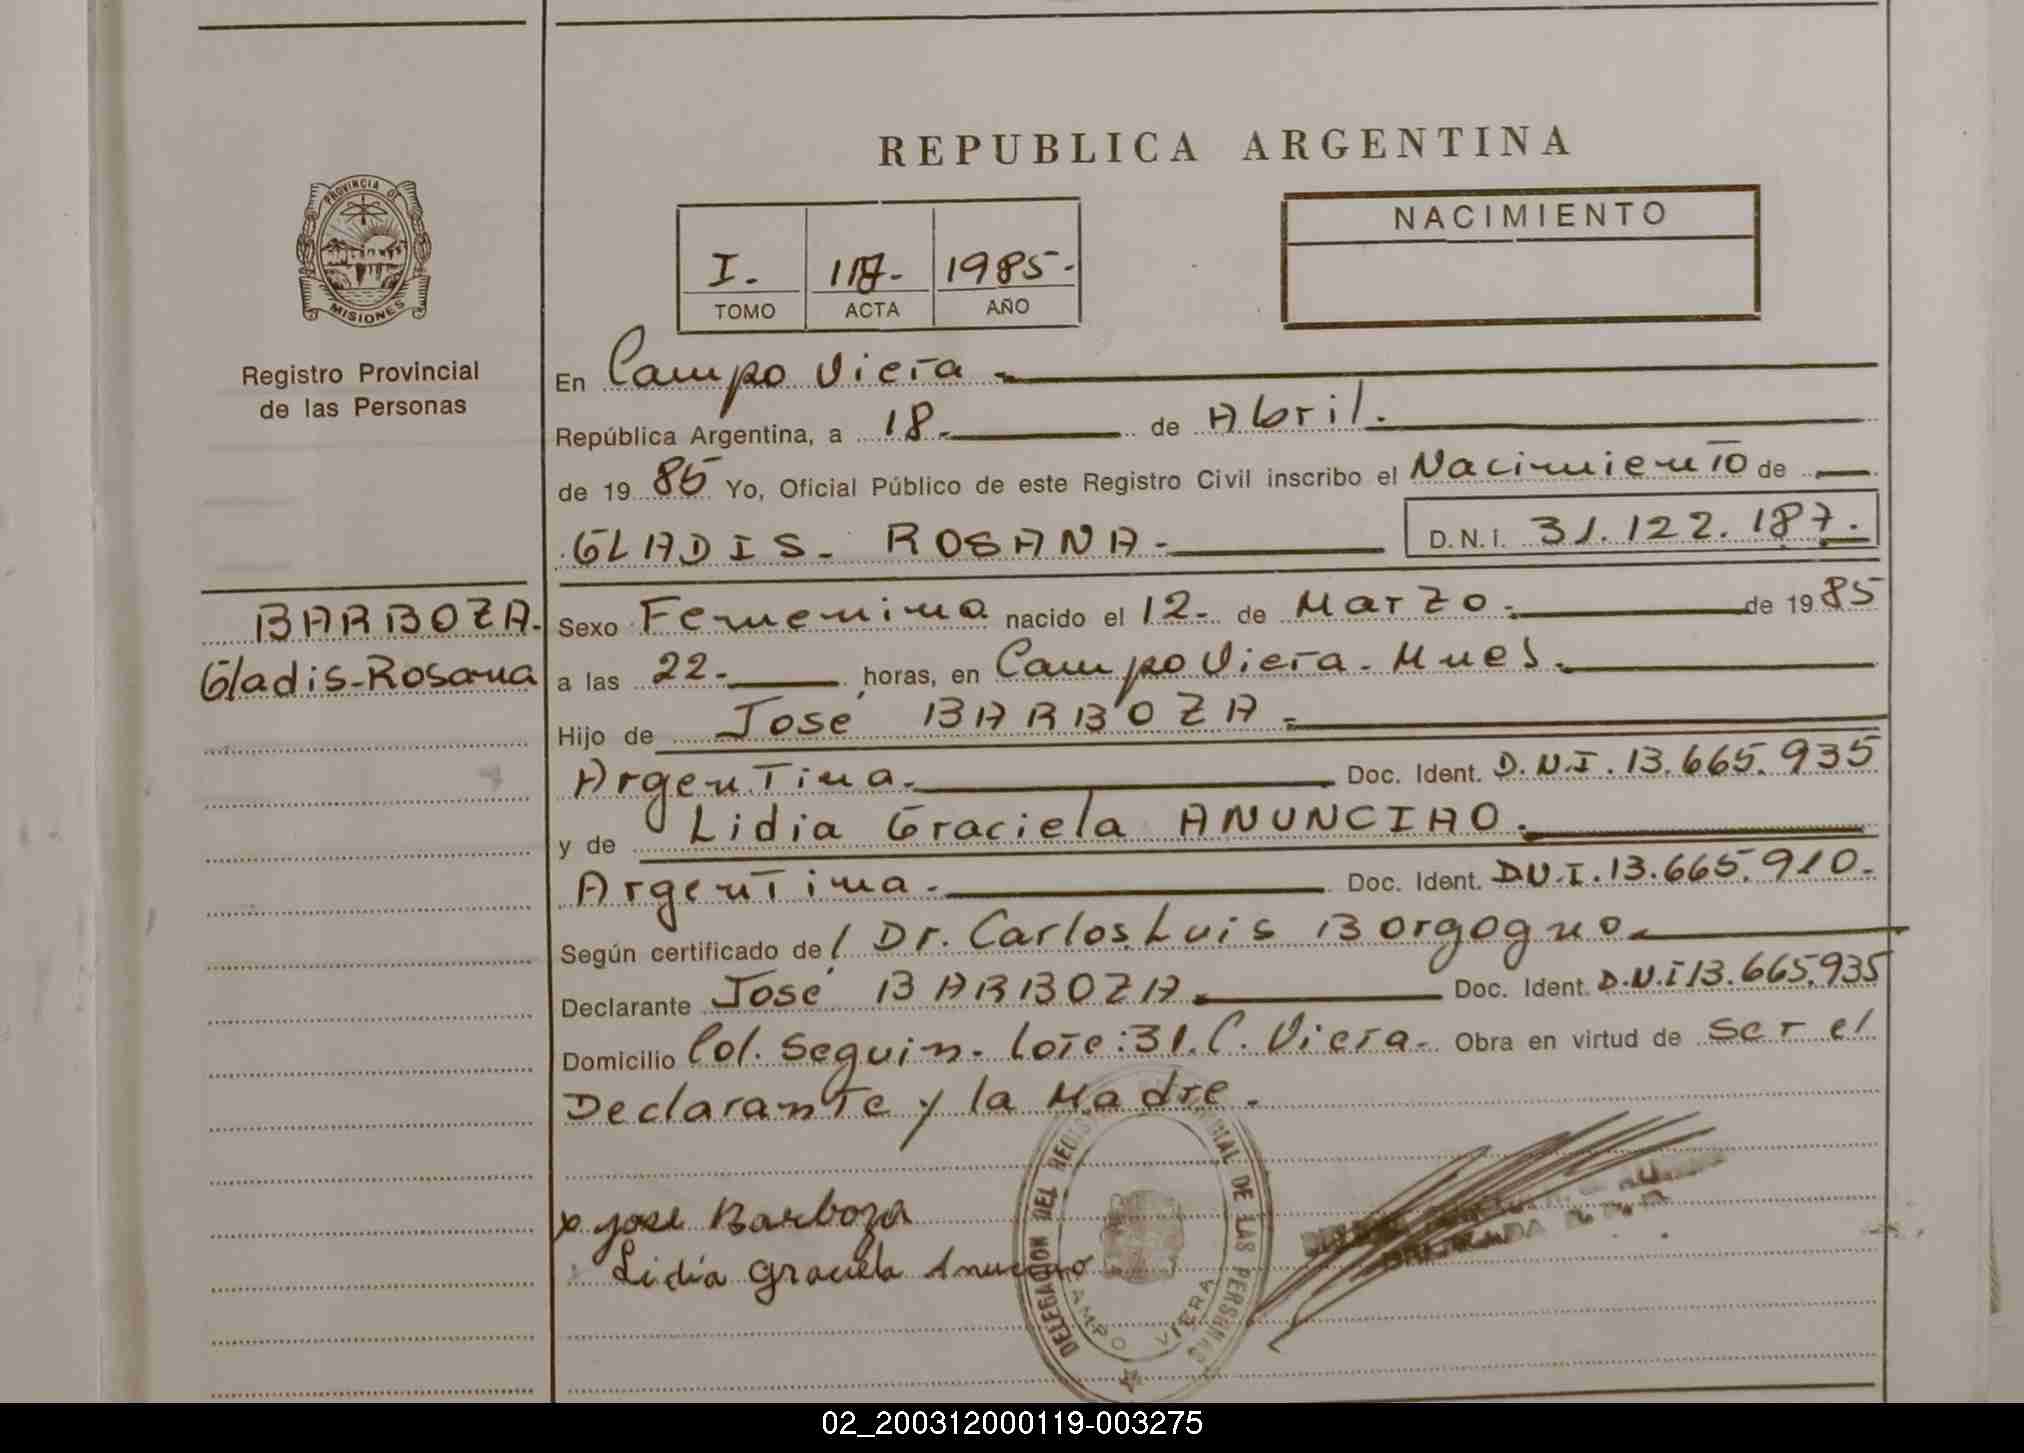 REPUBLICA ARGENTINA
PROVINCIA DE
MISIONES
Registro Provincial
de las Personas
NACIMIENTO
I. 1985.-
TOMO ACTA AÑO
En Campo Viera
República Argentina, a 18. de Abril.
de 19 85 Yo, Oficial Público de este Registro Civil inscribo el Nacimiento de
GLADIS - ROSANA - D.N.I. 31.122.187.
BARBOZA.
Gladis-Rosana
Sexo Femenina nacido el 12- de Marzo. de 19 85
a las 22- horas, en Campo Viera. Mnes.
Hijo de José BARBOZA
Argentina. Doc. Ident. D.N.I. 13.665.935
y de Lidia Graciela ANUNCIAO.
Argentina. Doc. Ident. D.N.I. 13.665.910.
Según certificado del Dr. Carlos Luis Borgogno
Declarante José BARBOZA. Doc. Ident. D.N.I 13.665.935
Domicilio Col. Seguin. Lote: 31. C. Viera. Obra en virtud de ser el
Declarante y la Madre.
x jose Barboza
Lidia Graciela
DELEGACION DEL DE LAS PERSONAS
CAMPO VIERA
02_200312000119-003275